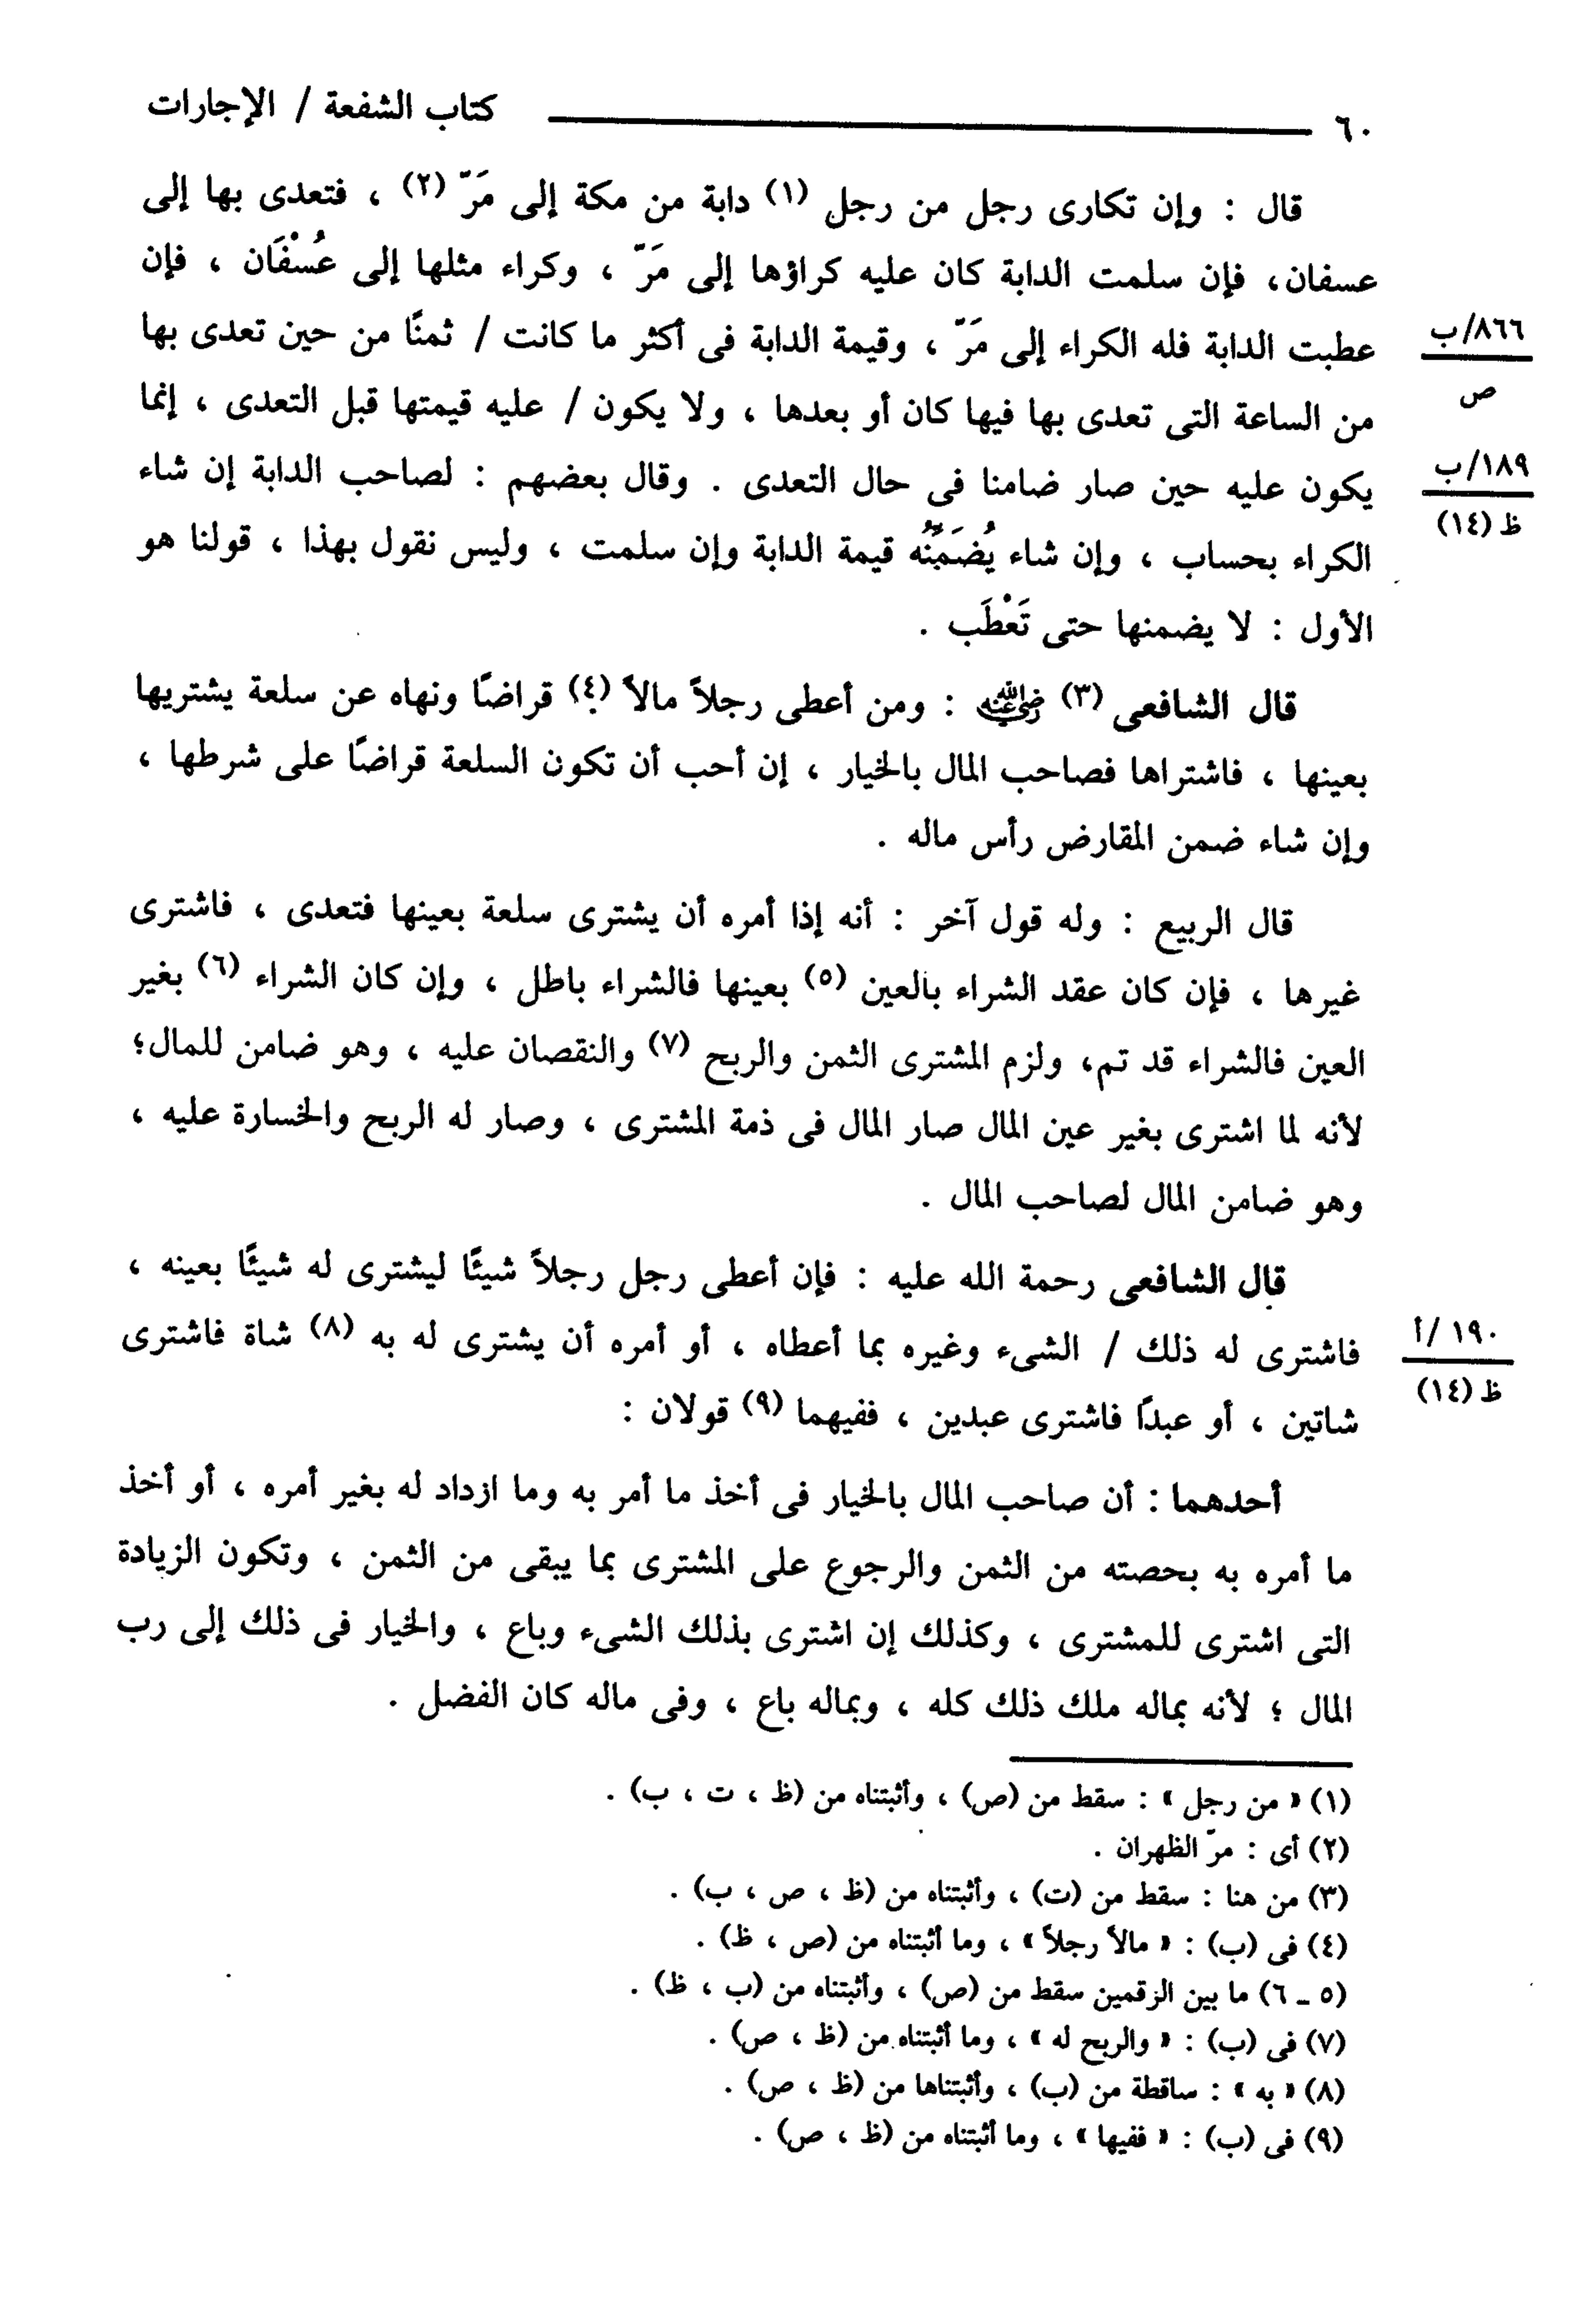 ٦٠ كتاب الشفعة / الإجارات
قال : وإن تكارى رجل من رجل (١) دابة من مكة إلى مَرّ (٢) ، فتعدى بها إلى
عسفان، فإن سلمت الدابة كان عليه كراؤها إلى مَرّ ، وكراء مثلها إلى عُسْفَان ، فإن
عطبت الدابة فله الكراء إلى مَرّ ، وقيمة الدابة فى أكثر ما كانت / ثمنًا من حين تعدى بها
٨٦٦/ب
ص
من الساعة التى تعدى بها فيها كان أو بعدها ، ولا يكون / عليه قيمتها قبل التعدى ، إنما
١٨٩/ب
ظ (١٤)
يكون عليه حين صار ضامنا فى حال التعدى . وقال بعضهم : لصاحب الدابة إن شاء
الكراء بحساب ، وإن شاء يُضَمِّنُه قيمة الدابة وإن سلمت ، وليس نقول بهذا ، قولنا هو
الأول : لا يضمنها حتى تَعْطَب .
قال الشافعى (٣) رضي الله عنه : ومن أعطى رجلاً مالاً (٤) قراضًا ونهاه عن سلعة يشتريها
بعينها ، فاشتراها فصاحب المال بالخيار ، إن أحب أن تكون السلعة قراضًا على شرطها ،
وإن شاء ضمن المقارض رأس ماله .
قال الربيع : وله قول آخر : أنه إذا أمره أن يشترى سلعة بعينها فتعدى ، فاشترى
غيرها ، فإن كان عقد الشراء بالعين (٥) بعينها فالشراء باطل ، وإن كان الشراء (٦) بغير
العين فالشراء قد تم، ولزم المشترى الثمن والربح (٧) والنقصان عليه ، وهو ضامن للمال؛
لأنه لما اشترى بغير عين المال صار المال فى ذمة المشترى ، وصار له الربح والخسارة عليه ،
وهو ضامن المال لصاحب المال .
قال الشافعى رحمة الله عليه : فإن أعطى رجل رجلاً شيئًا ليشترى له شيئًا بعينه ،
فاشترى له ذلك / الشىء وغيره بما أعطاه ، أو أمره أن يشترى له به (٨) شاة فاشترى
١٩٠/أ
ظ (١٤)
شاتين ، أو عبدًا فاشترى عبدين ، ففيهما (٩) قولان :
أحدهما : أن صاحب المال بالخيار فى أخذ ما أمر به وما ازداد له بغير أمره ، أو أخذ
ما أمره به بحصته من الثمن والرجوع على المشترى بما يبقى من الثمن ، وتكون الزيادة
التى اشترى للمشترى ، وكذلك إن اشترى بذلك الشىء وباع ، والخيار فى ذلك إلى رب
المال ؛ لأنه بماله ملك ذلك كله ، وبماله باع ، وفى ماله كان الفضل .
(١) « من رجل » : سقط من (ص) ، وأثبتناه من (ظ ، ت ، ب) .
(٢) أى : مرّ الظهران .
(٣) من هنا : سقط من (ت) ، وأثبتناه من (ظ ، ص ، ب) .
(٤) فى (ب) : « مالاً رجلاً » ، وما أثبتناه من (ص ، ظ) .
(٥ ـ ٦) ما بين الرقمين سقط من (ص) ، وأثبتناه من (ب ، ظ) .
(٧) فى (ب) : « والربح له » ، وما أثبتناه من (ظ ، ص) .
(٨) « به » : ساقطة من (ب) ، وأثبتناها من (ظ ، ص) .
(٩) فى (ب) : « ففيها » ، وما أثبتناه من (ظ ، ص) .